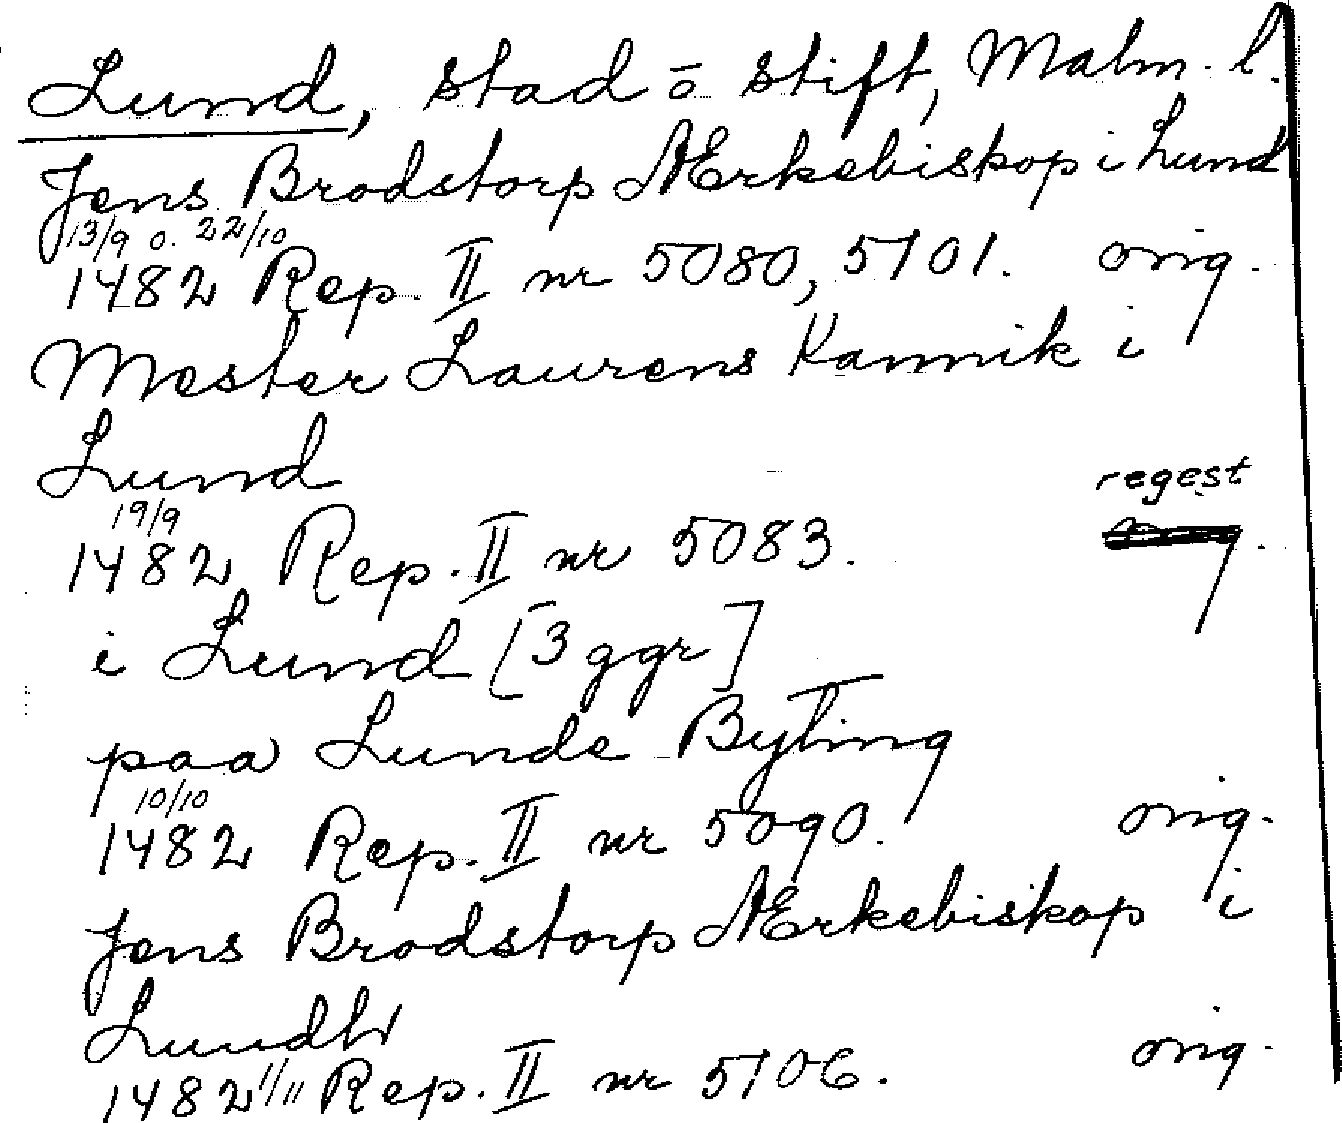 Lund, stad ō stift, Malm. l.
Jens Brodstorp Ærkebiskop i Lund
13/9 o. 22/10
1482 Rep. II nr 5080, 5101. orig.
Mester Laurens Kannik i
Lund
regest
19/9
1482 Rep. II nr 5083.
i Lund [3 ggr]
paa Lunde Byting
10/10
1482 Rep. II nr 5090. orig.
Jens Brodstorp Ærkebiskop i
Lundh
1482 1/11 Rep. II nr 5106. orig.